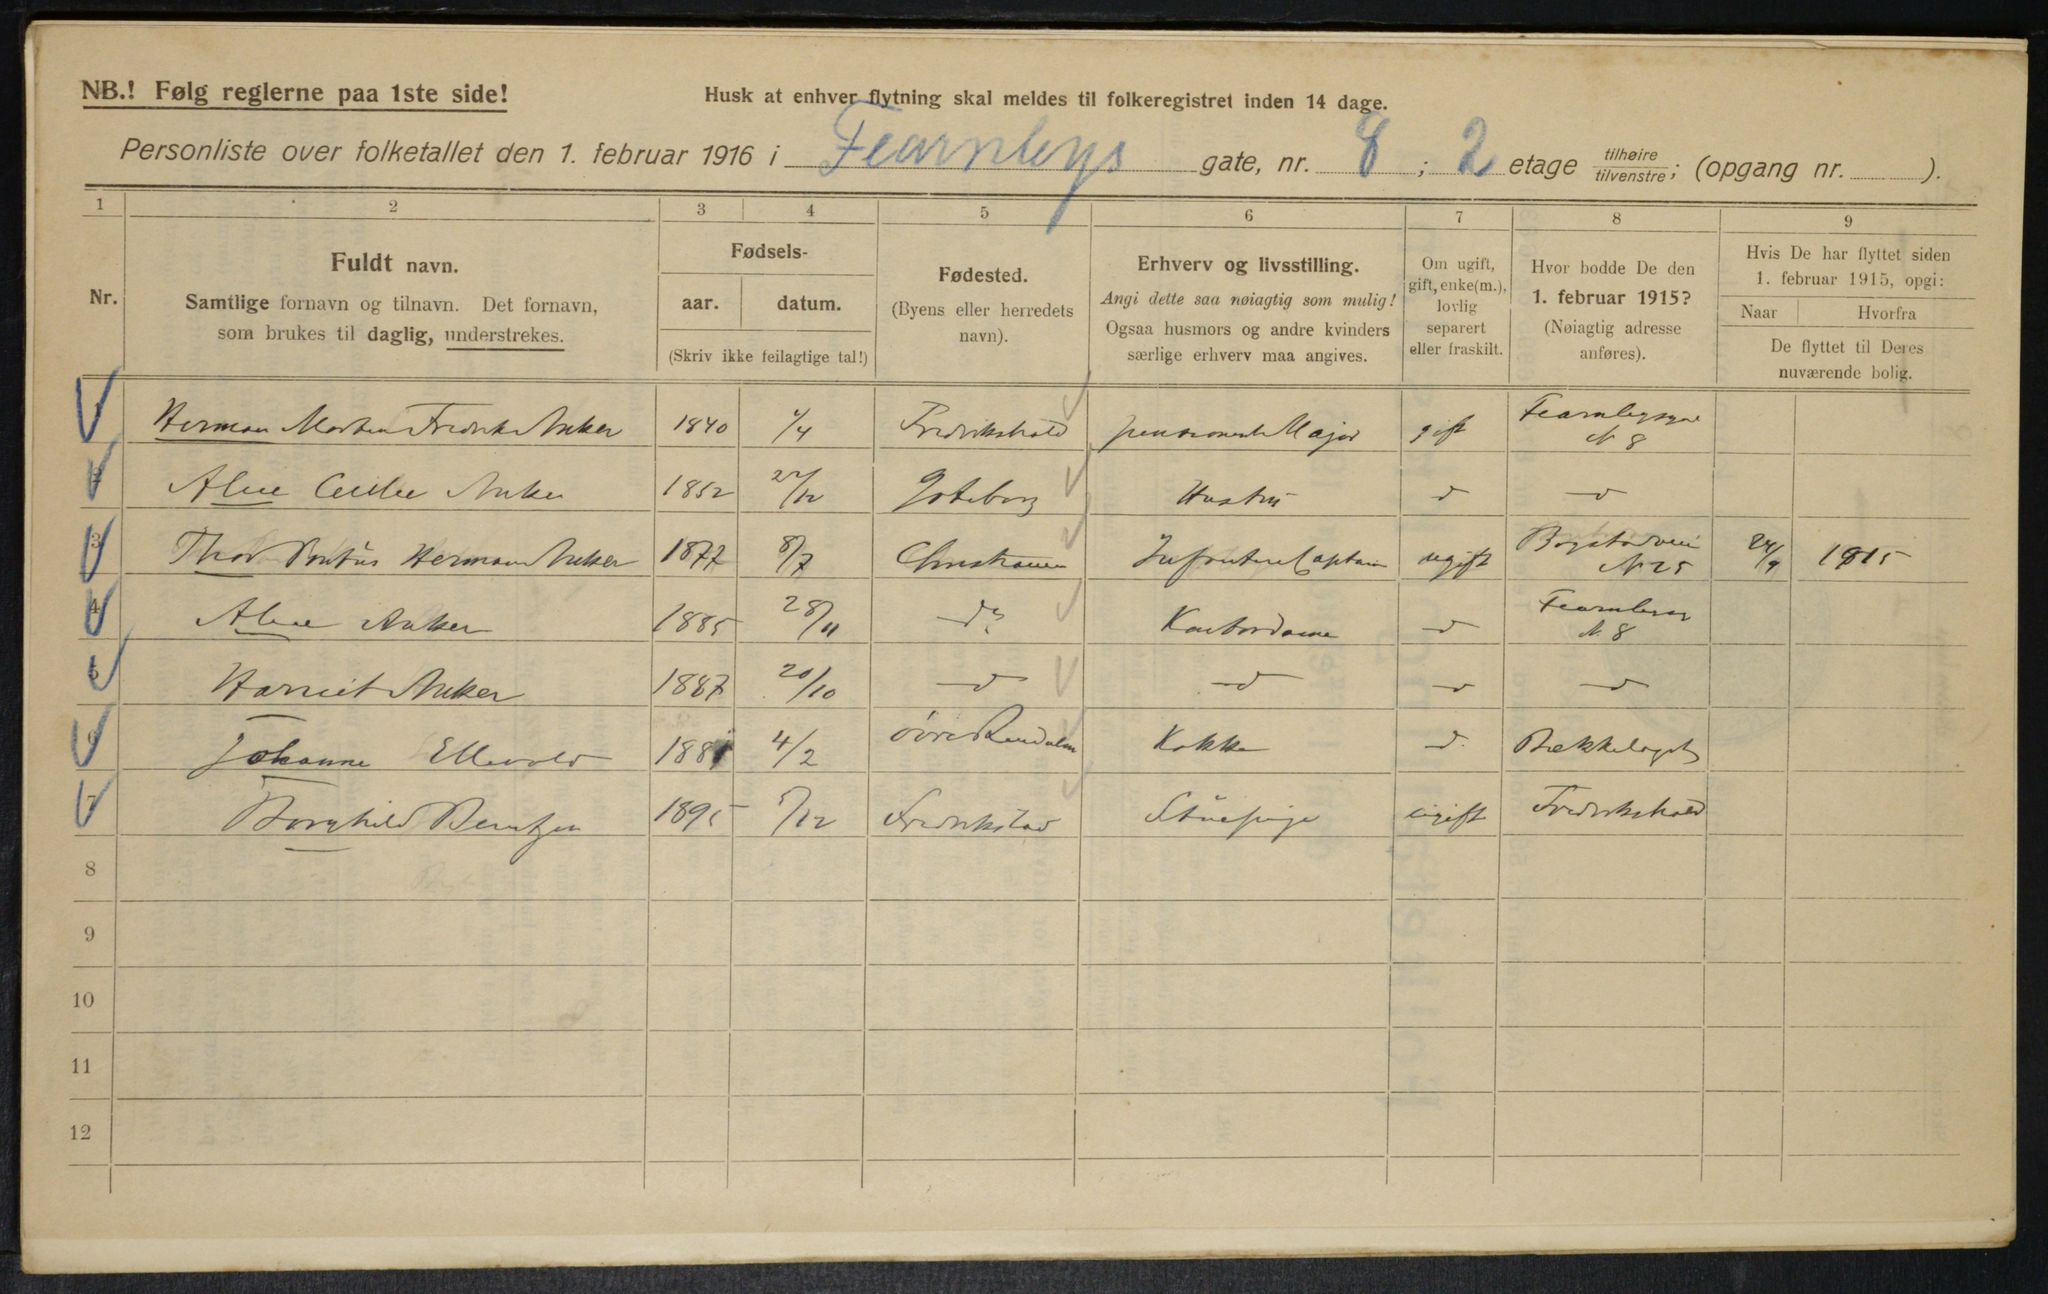 NB.! Følg reglerne paa 1ste side!
Husk at enhver flytning skal meldes til folkeregistret inden 14 dage.
Personliste over folketallet den 1. februar 1916 i Fearnleys gate, nr. 8 ; 2 etage tilhøire/tilvenstre; (opgang nr. ).
1 2 3 4 5 6 7 8 9
Nr.
Fuldt navn.
Samtlige fornavn og tilnavn. Det fornavn,
som brukes til daglig, understrekes.
Fødsels-
aar. datum.
(Skriv ikke feilagtige tal!)
Fødested.
(Byens eller herredets
navn).
Erhverv og livsstilling.
Angi dette saa nøiagtig som mulig!
Ogsaa husmors og andre kvinders
særlige erhverv maa angives.
Om ugift,
gift, enke(m.),
lovlig
separert
eller fraskilt.
Hvor bodde De den
1. februar 1915?
(Nøiagtig adresse
anføres).
Hvis De har flyttet siden
1. februar 1915, opgi:
Naar Hvorfra
De flyttet til Deres
nuværende bolig.
1 Herman Morten Fredrik Anker 1840 /4 Fredrikshald Major gift N 8
2 Alice Anker 1852 /12 Goteborg Hustru d d
3 Thor Pontus Herman Anker 1877 8/7 Christiania Infanteri Captain ugift Bogstadvei N 25 24/9 1915
4 Alice Anker 1885 28/11 do Kontordame d N. 8
5 Harriet Anker 1887 20/10 d d d d
6 Johanne Ellevold 188 4/2 øvre Rendalen Kokke d. Bækkelaget
7 Borghild Berntzen 1895 /12 Fredrikstad Stuepige ugift Fredrikshald
8
9
10
11
12